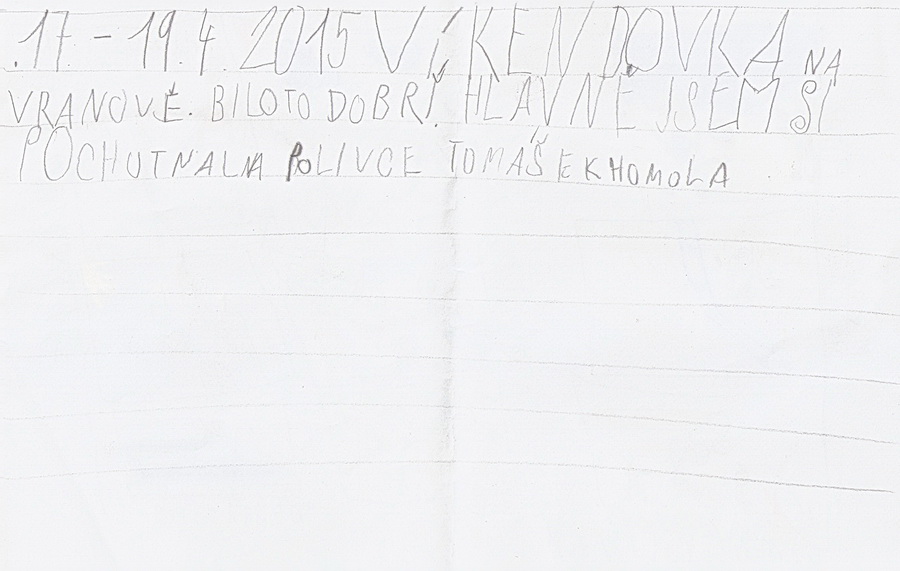 .17. - 19.4. 2015 VÍKENDOVKA NA
VRANOVĚ. BILOTO DOBRÍ. HLAVNE JSEM SI
POCHUTNALNA POLIVCE TOMÁŠEK HOMOLA